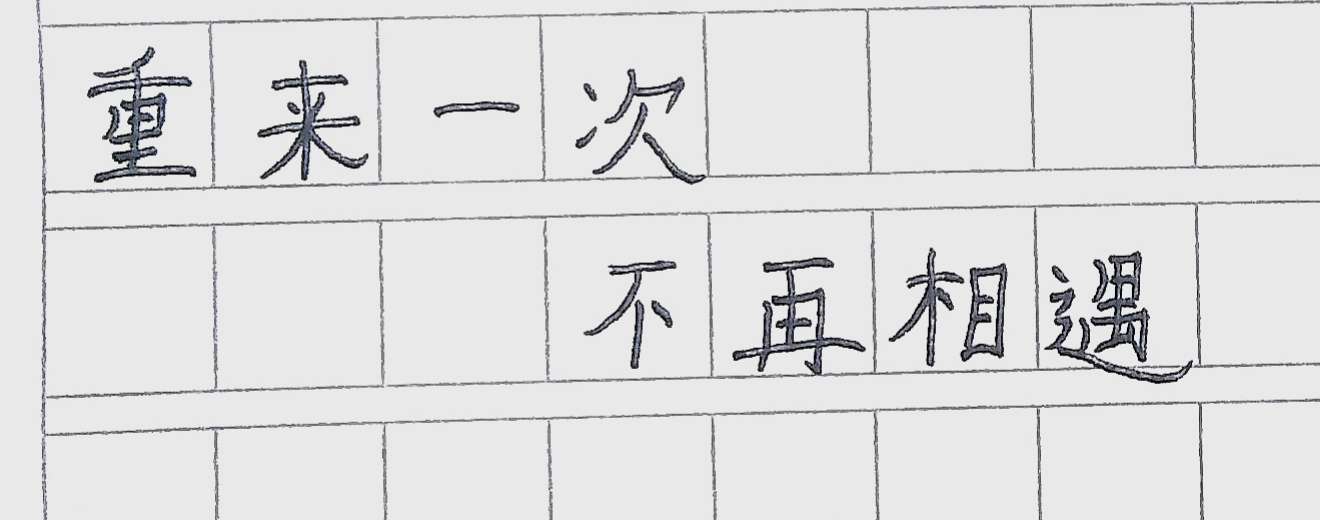 重来一次
不再相遇